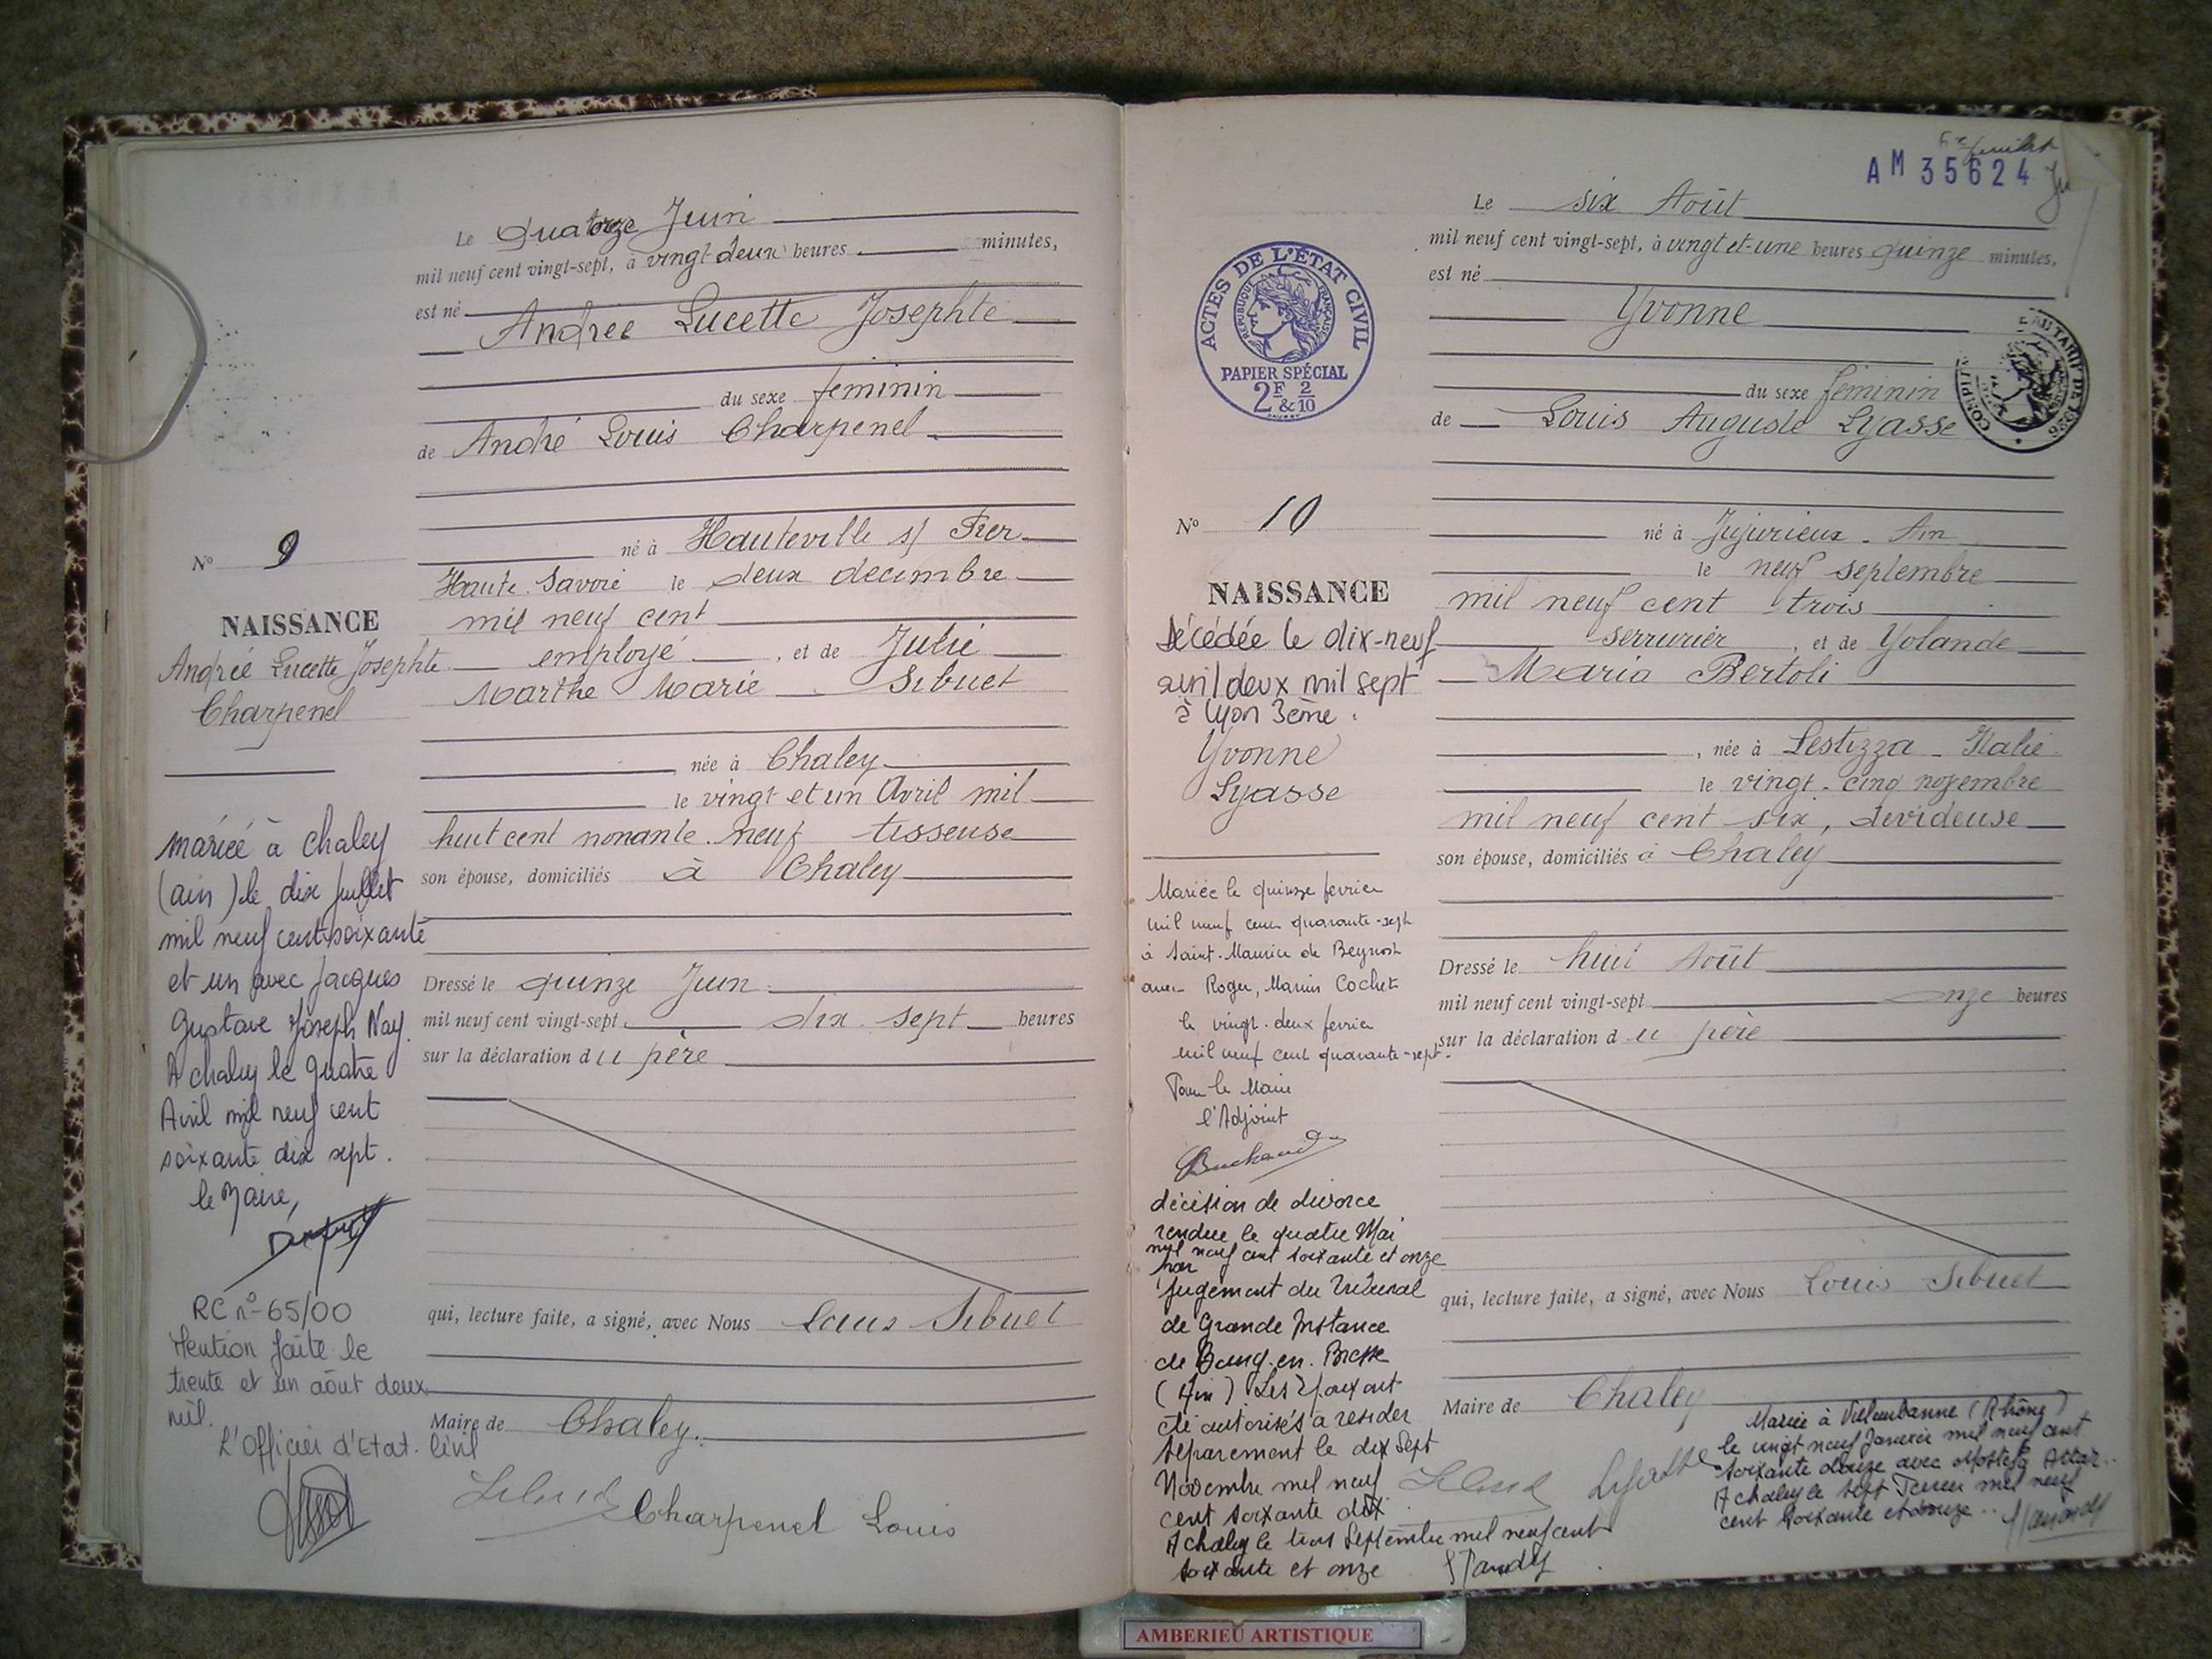 Le Quatorze Juin
mil neuf cent vingt-sept, à vingt deux heures minutes,
est né
Andrée Lucette Josephte
du sexe feminin
de André Louis Charpenel
né à Hauteville s/ Fier
Haute Savoie le deux decembre
mil neuf cent
employé, et de Julie
Marthe Marie Sibuet
née à Chaley
le vingt et un Avril mil
huit cent nonante neuf tisseuse
son épouse, domiciliés à Chaley
Dressé le quinze Juin
mil neuf cent vingt-sept, dix sept heures
sur la déclaration du père
qui, lecture faite, a signé, avec Nous Louis Sibuet
Maire de Chaley.
Charpenel Louis
No 9
NAISSANCE
Andrée Lucette Josephte
Charpenel
mariée à Chaley
(ain) le dix juillet
mil neuf cent soixante
et un avec Jacques
Gustave Joseph Nay.
A chaley le quatre
Avril mil neuf cent
soixante dix sept.
le Maire,
RC n° 65/00
Mention faite le
trente et un août deux
mil.
L'Officier d'Etat Civil
AM 35624
feuillet
Le six Août
mil neuf cent vingt-sept, à vingt et une heures quinze minutes,
est né
Yvonne
du sexe féminin
de Louis Auguste Lyasse
né à Jujurieux - Ain
le neuf septembre
mil neuf cent trois
serrurier, et de Yolande
Maria Bertoli
, née à Lestizza - Italie
le vingt-cinq novembre
mil neuf cent six, dévideuse
son épouse, domiciliés à Chaley
Dressé le huit Août
mil neuf cent vingt-sept onze heures
sur la déclaration du père
qui, lecture faite, a signé, avec Nous Louis Sibuet
Maire de Chaley
Lyasse
ACTES DE L'ÉTAT CIVIL
RÉPUBLIQUE FRANÇAISE
PAPIER SPÉCIAL
2F & 2/10
TARIF DE 1926
No 10
NAISSANCE
Décédée le dix-neuf
avril deux mil sept
à Lyon 3ème.
Yvonne
Lyasse
Mariée le quinze fevrier
mil neuf cent quarante-sept
à Saint-Maurice de Beynost
avec Roger, Marius Cochet
le vingt-deux fevrier
mil neuf cent quarante-sept.
Pour le Maire
l'Adjoint
décision de divorce
rendue le quatre Mai
mil neuf cent soixante et onze
par
jugement du Tribunal
de Grande Instance
de Bourg-en-Bresse
(Ain) Les Epoux ont
été autorisés à resider
séparement le dix sept
Novembre mil neuf
cent soixante dix
A chaley le trois Septembre mil neuf cent
soixante et onze
Mariée à Villeurbanne (Rhône)
le vingt neuf Janvier mil neuf cent
soixante douze avec Mostefa Attar.
A chaley le sept Fevrier mil neuf
cent soixante et douze..
AMBERIEU ARTISTIQUE